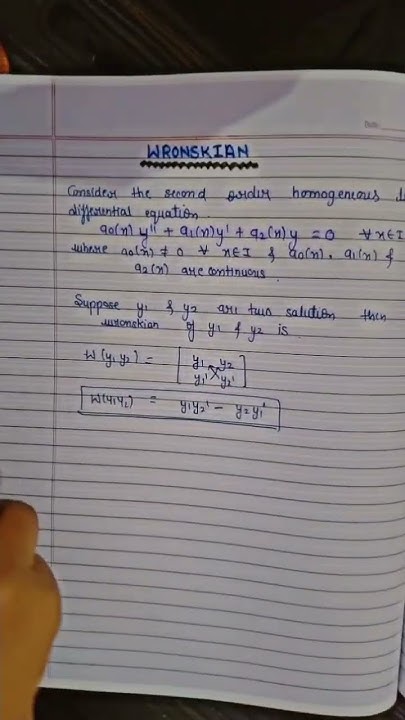 Date
WRONSKIAN
Consider the second order homogenious
differential equation.
a0(x) y'' + a1(x)y' + a2(x)y = 0 ∀ x∈I
where a0(x) ≠ 0 ∀ x∈I & a0(x), a1(x) &
a2(x) are continuous.
Suppose y1 & y2 are two solution then
wronskian of y1 & y2 is
W(y1 y2) = [y1 y2
y1' y2']
W(y1y2) = y1y2' - y2y1'